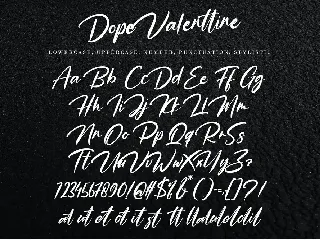 Dope Valenttine
LOWERCASE, UPPERCASE, NUMBER, PUNCTUATION, STYLISTIC
Aa Bb Cc Dd Ee Ff Gg
Hh Ii Jj Kk Ll Mm
Nn Oo Pp Qq Rr Ss
Tt Uu Vv Ww Xx Yy Zz
1234567890!@#$%&*()-=[]?/
at ut et ot it st tt